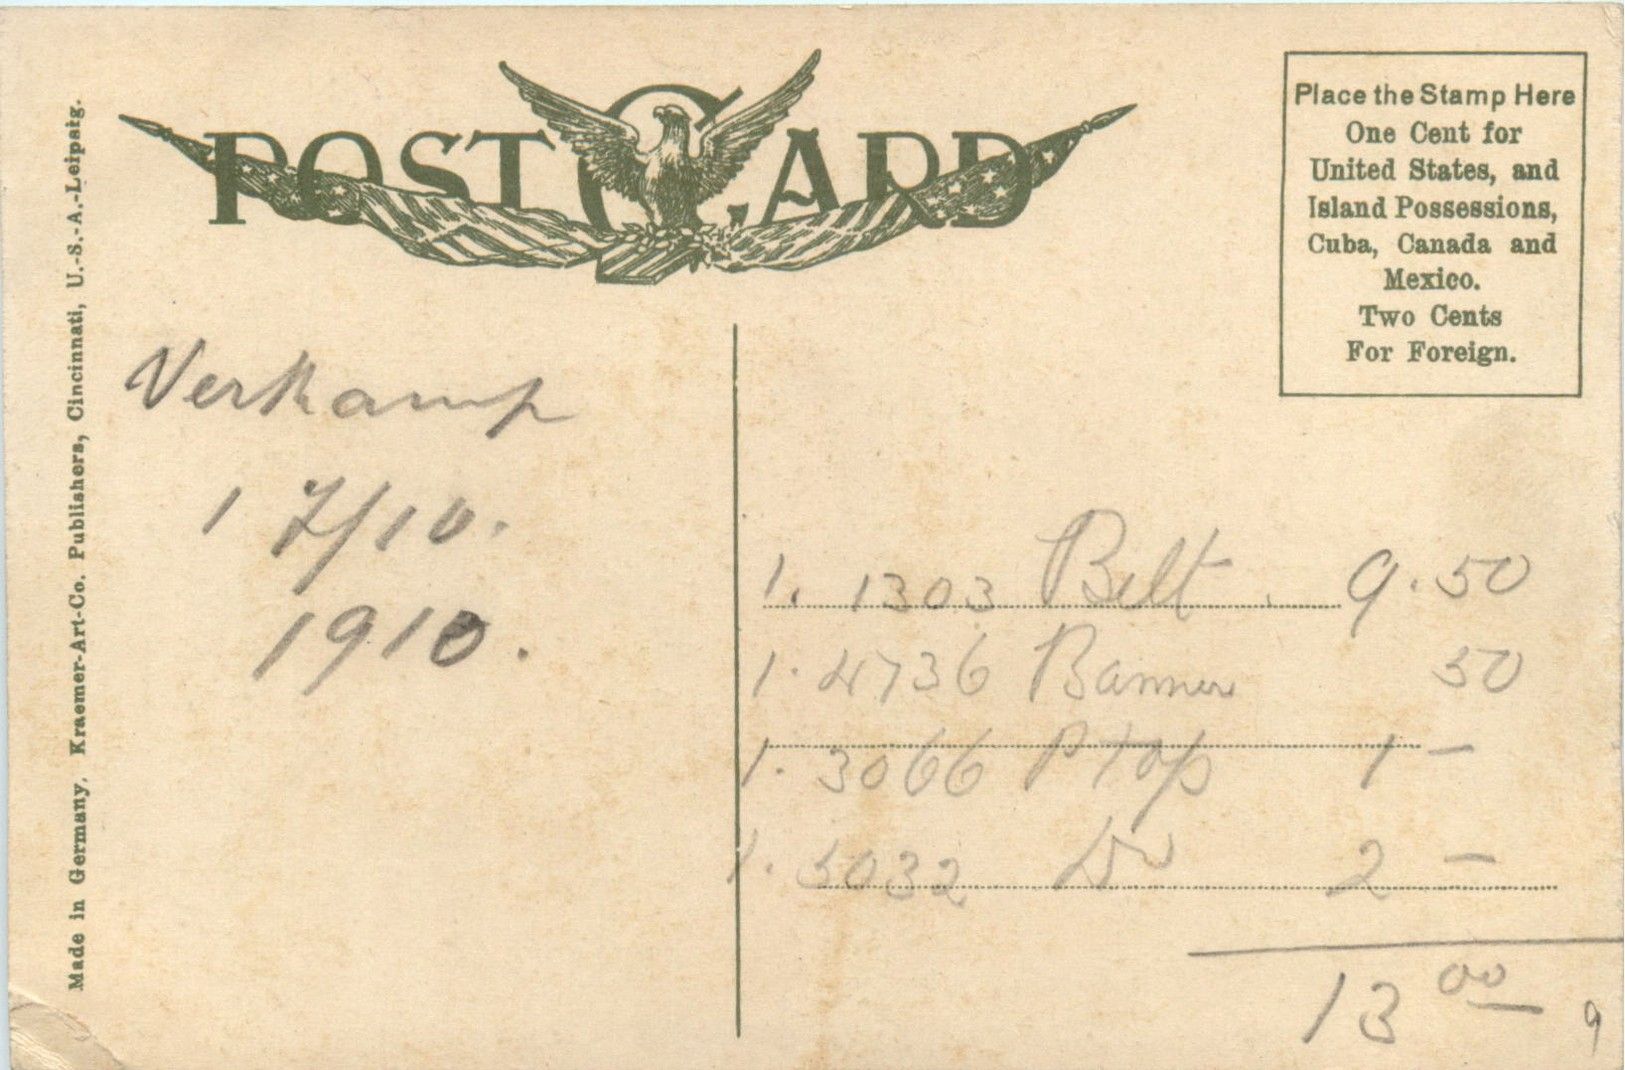 POST CARD
Place the Stamp Here
One Cent for
United States, and
Island Possessions,
Cuba, Canada and
Mexico.
Two Cents
For Foreign.
Made in Germany. Kraemer-Art-Co. Publishers, Cincinnati, U.-S.-A.-Leipsig.
Verkamp
1 7/10.
1910.
1. 1303 Belt. 9.50
1. 4736 Banner 50
1. 3066 P top 1 –
1. 3032 Do 2 –
13 00
9